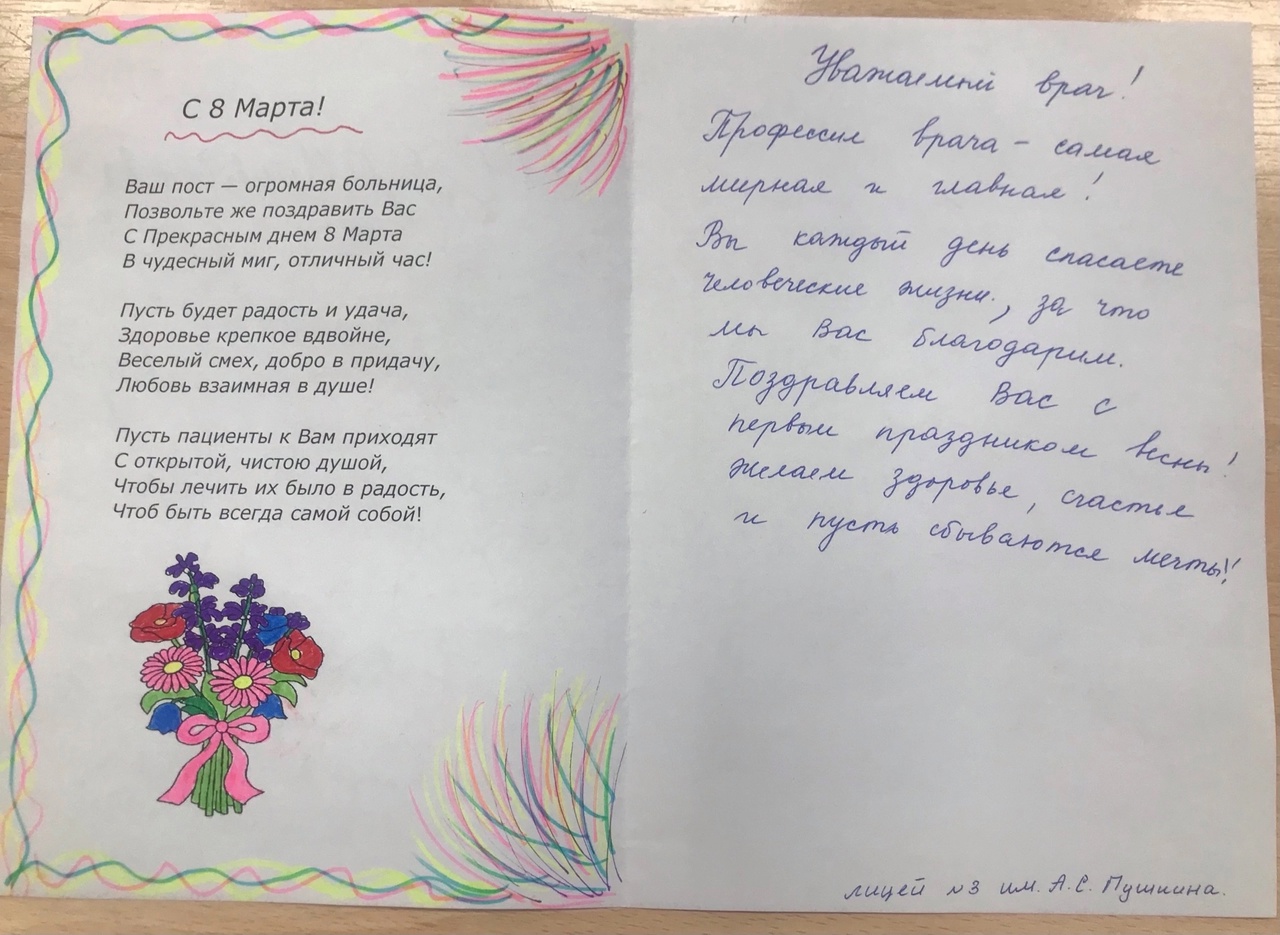 С 8 Марта!
Ваш пост — огромная больница,
Позвольте же поздравить Вас
С Прекрасным днем 8 Марта
В чудесный миг, отличный час!
Пусть будет радость и удача,
Здоровье крепкое вдвойне,
Веселый смех, добро в придачу,
Любовь взаимная в душе!
Пусть пациенты к Вам приходят
С открытой, чистою душой,
Чтобы лечить их было в радость,
Чтоб быть всегда самой собой!
Уважаемый врач!
Профессия врача - самая
мирная и главная!
Вы каждый день спасаете
человеческие жизни, за что
мы Вас благодарим.
Поздравляем Вас с
первым праздником весны!
Желаем здоровье, счастья
и пусть сбываются мечты!
лицей №3 им. А.С. Пушкина.